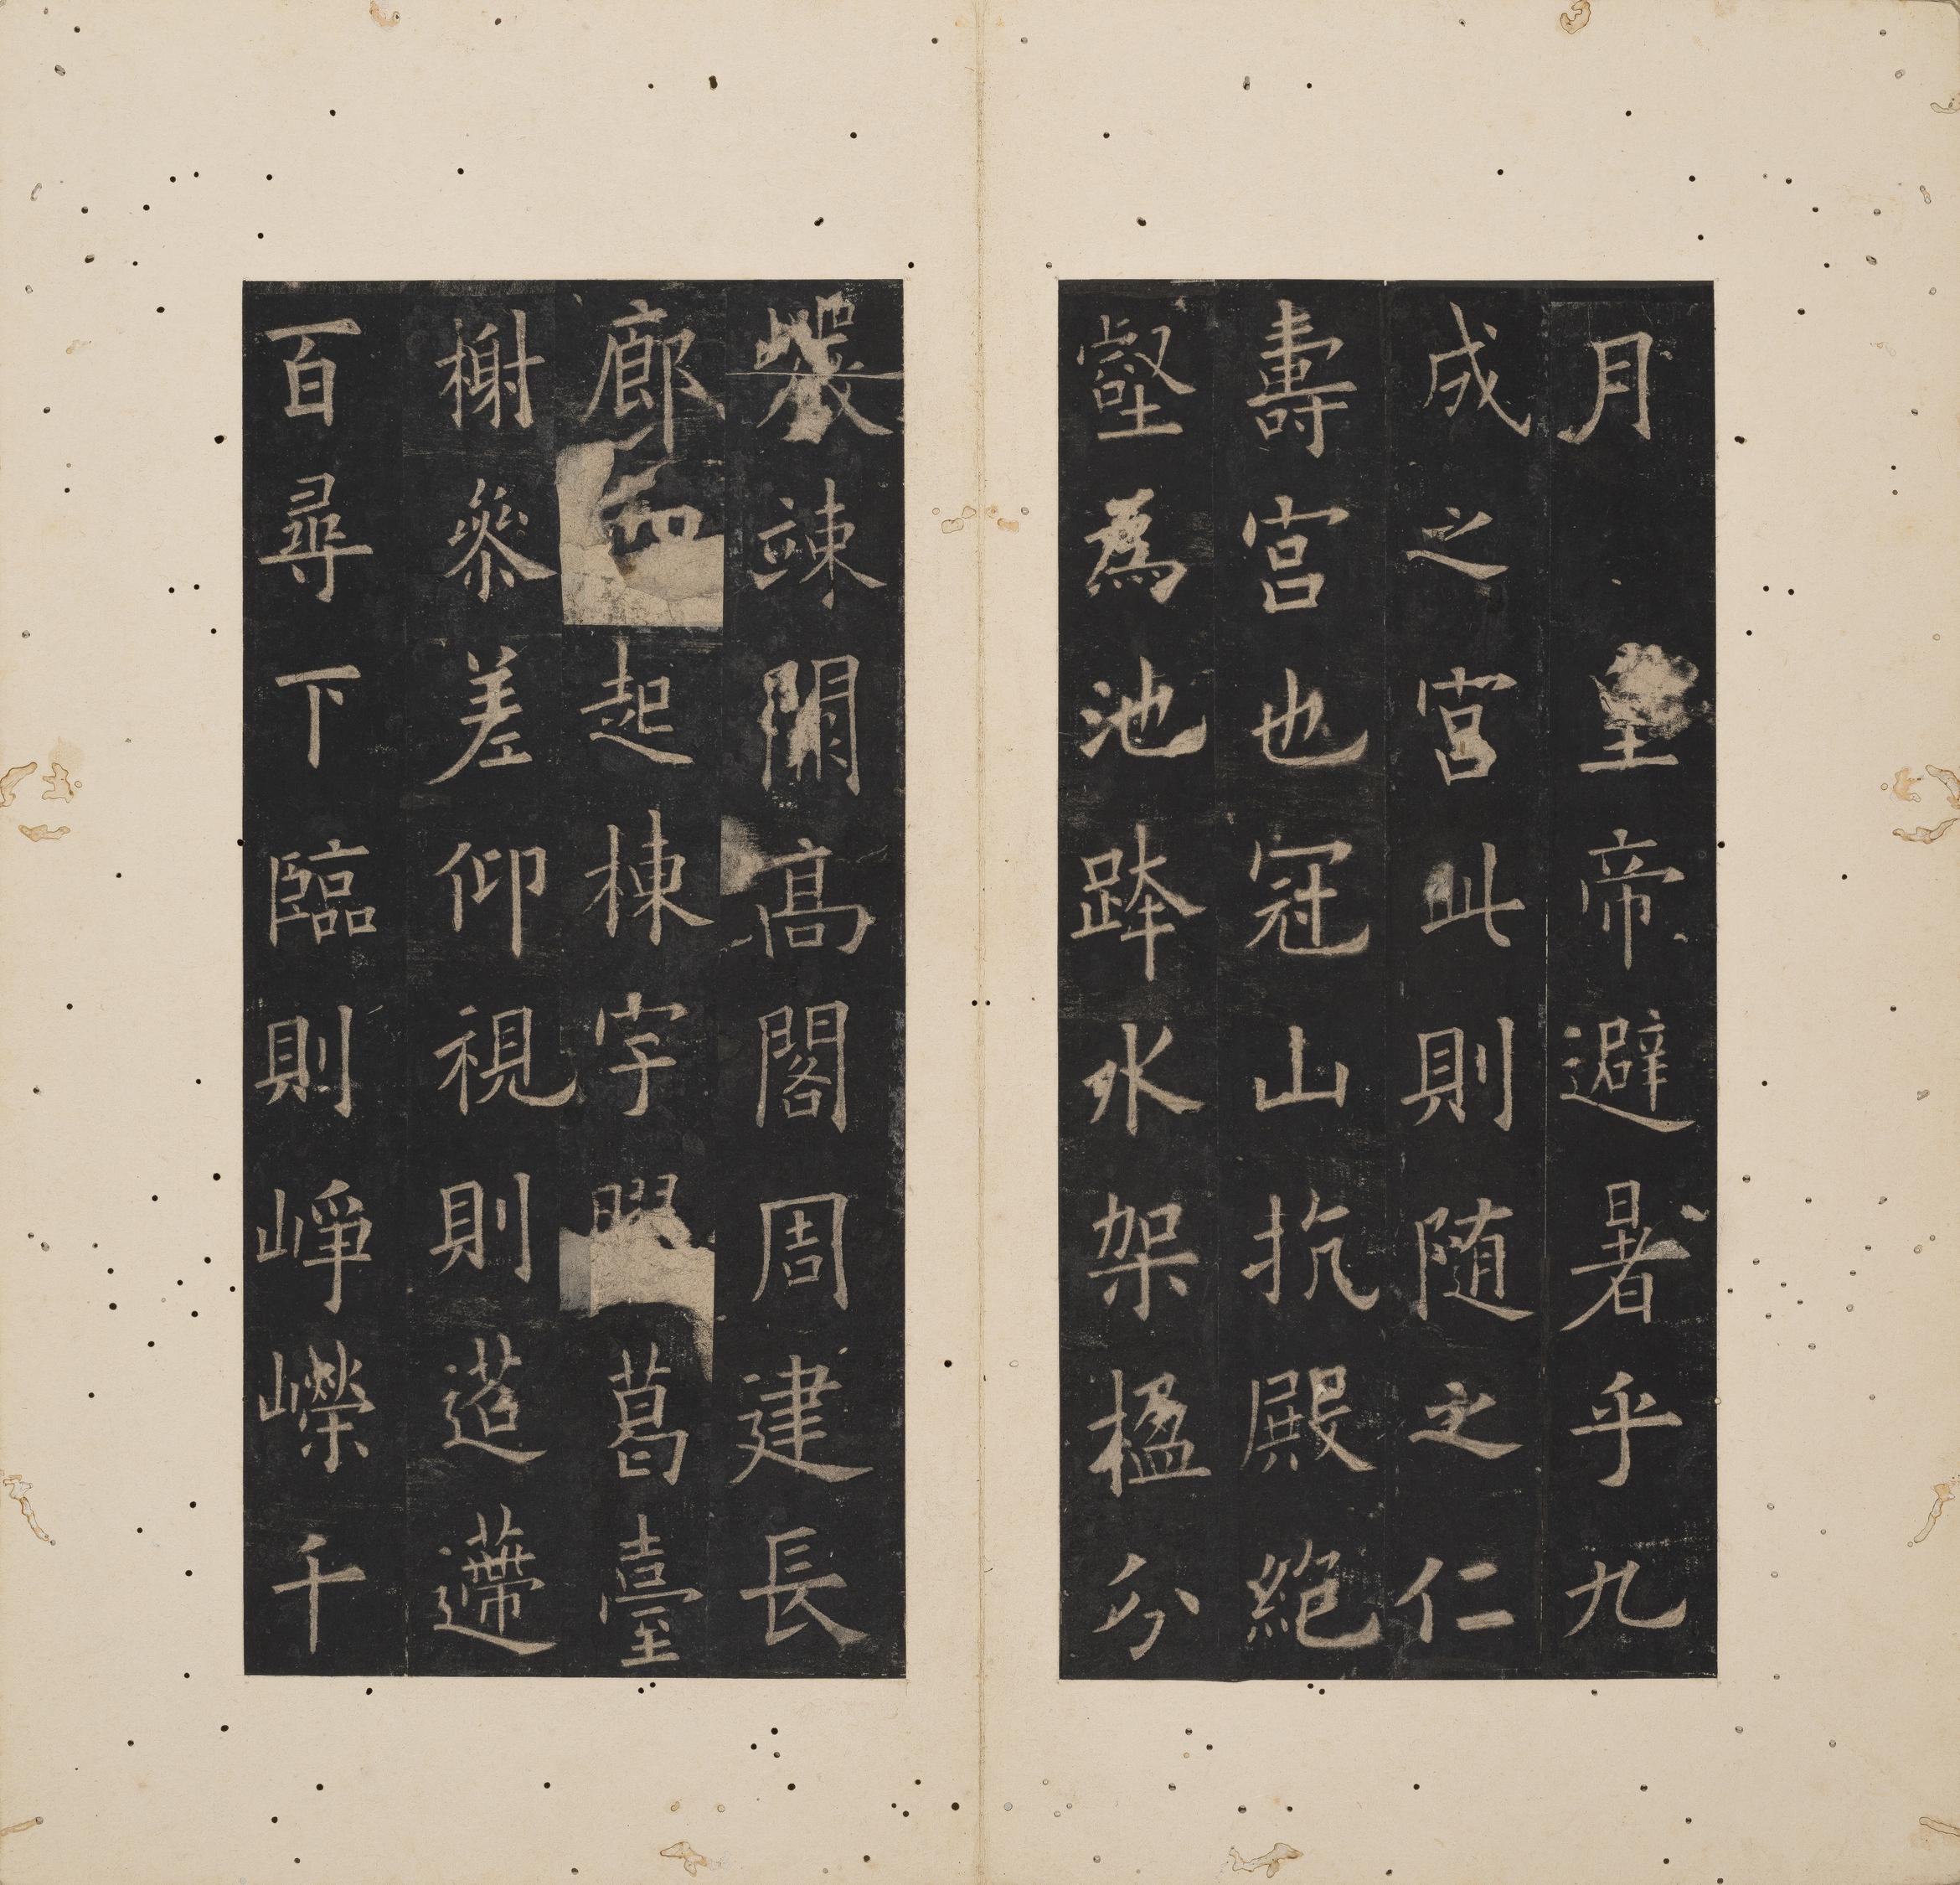 月皇帝避暑乎九
成之宮此則随之仁
壽宮也冠山抗殿絶
壑爲池跨水架楹分
巖竦闕高閣周建長
廊四起棟宇膠葛臺
榭參差仰視則迢遰
百尋下臨則崢嶸千